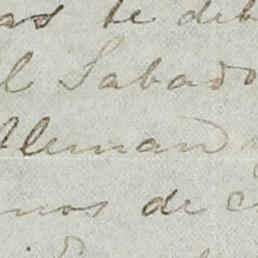 as te deb
l Sabado
Aleman y
nos de